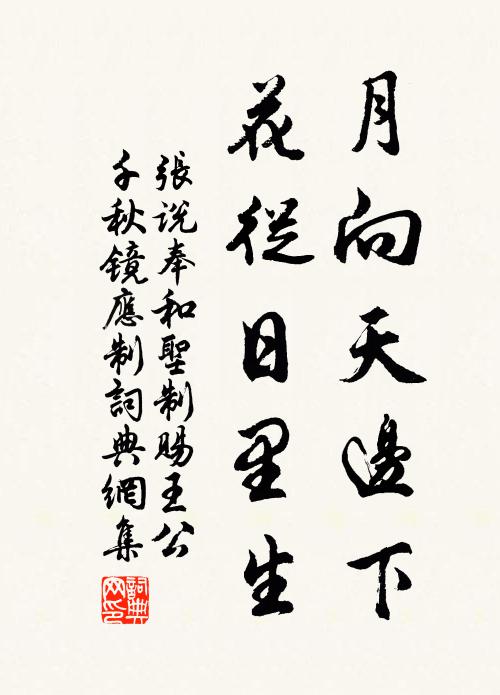 月向天邊下
花從日里生
張説奉和聖制賜王公
千秋鏡應制詞典網集
詞典網印